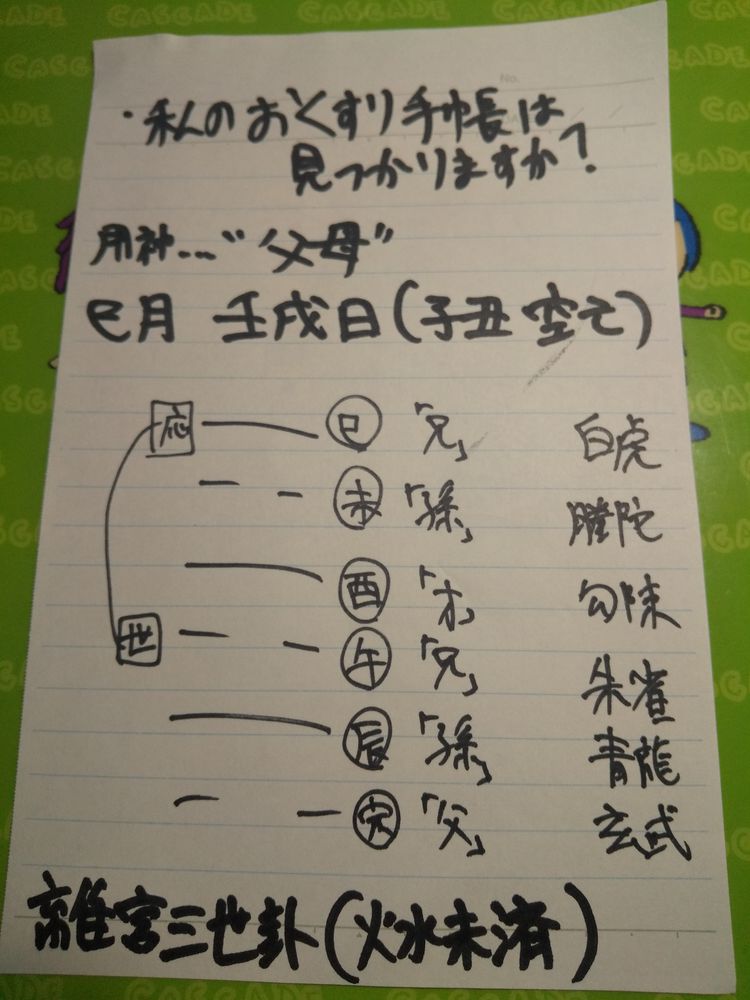 CASCADE
No.
・私のおくすり手帳は
見つかりますか?
用神…"父母"
巳月 壬戌日(子丑 空亡)
応 巳 「兄」 白虎
未 「孫」 騰陀
酉 「才」 勾陳
世 午 「兄」 朱雀
辰 「孫」 青龍
寅 「父」 玄武
離宮三世卦(火水未済)